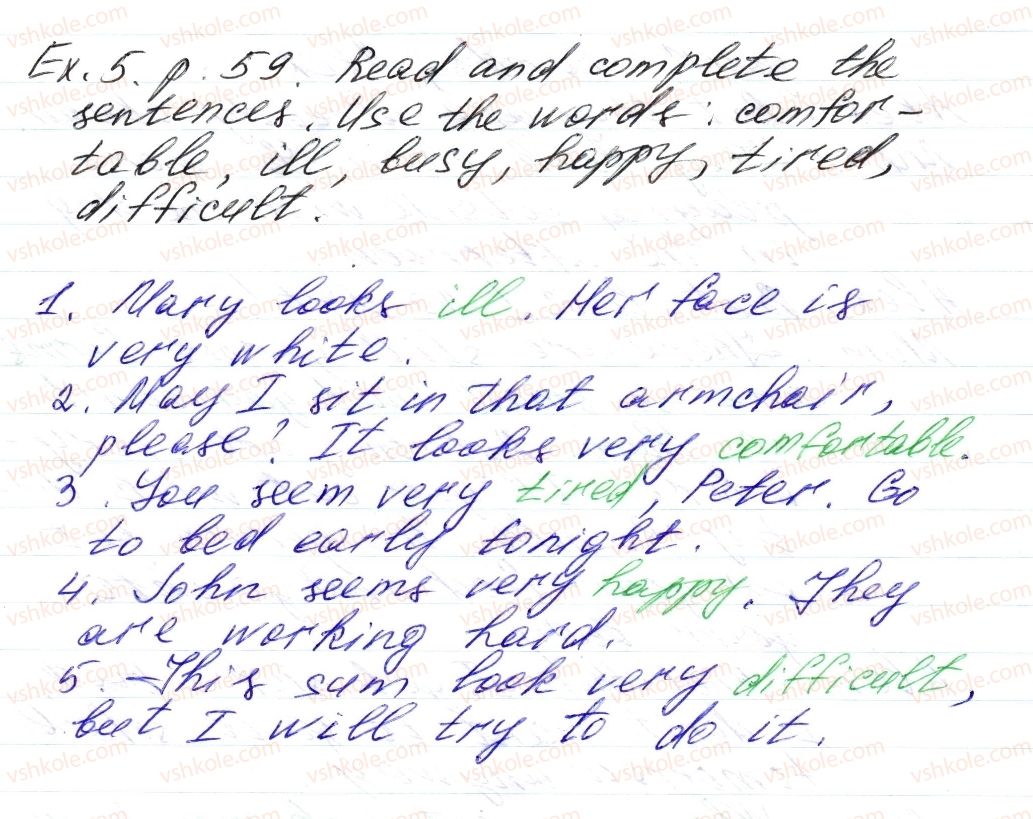 Ex. 5. p. 59. Read and complete the
sentences. Use the words: comfor-
table, ill, busy, happy, tired,
difficult.
1. Mary looks ill. Her face is
very white.
2. May I sit in that armchair,
please? It looks very comfortable.
3. You seem very tired, Peter. Go
to bed early tonight.
4. John seems very happy. They
are working hard.
5. This sum look very difficult,
but I will try to do it.